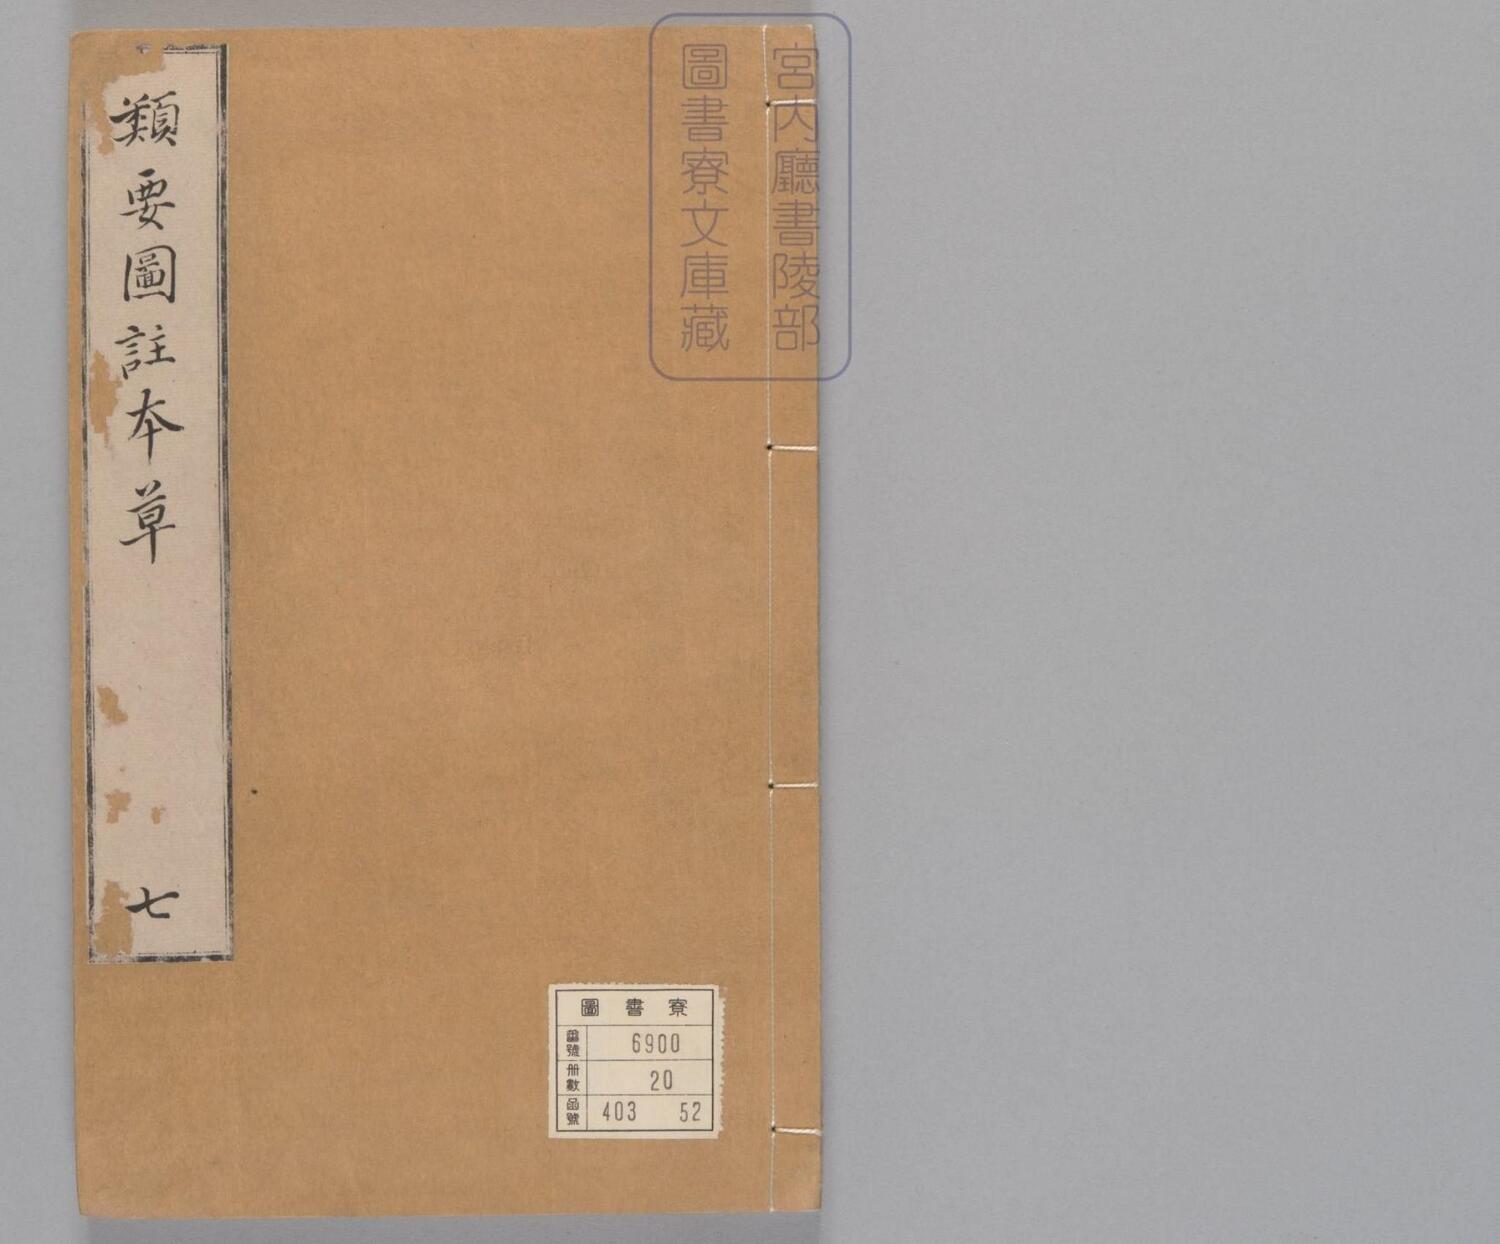 宮内廳書陵部
圖書寮文庫藏
類要圖註本草
七
圖書寮
番號 6900
册數 20
函號 403 52